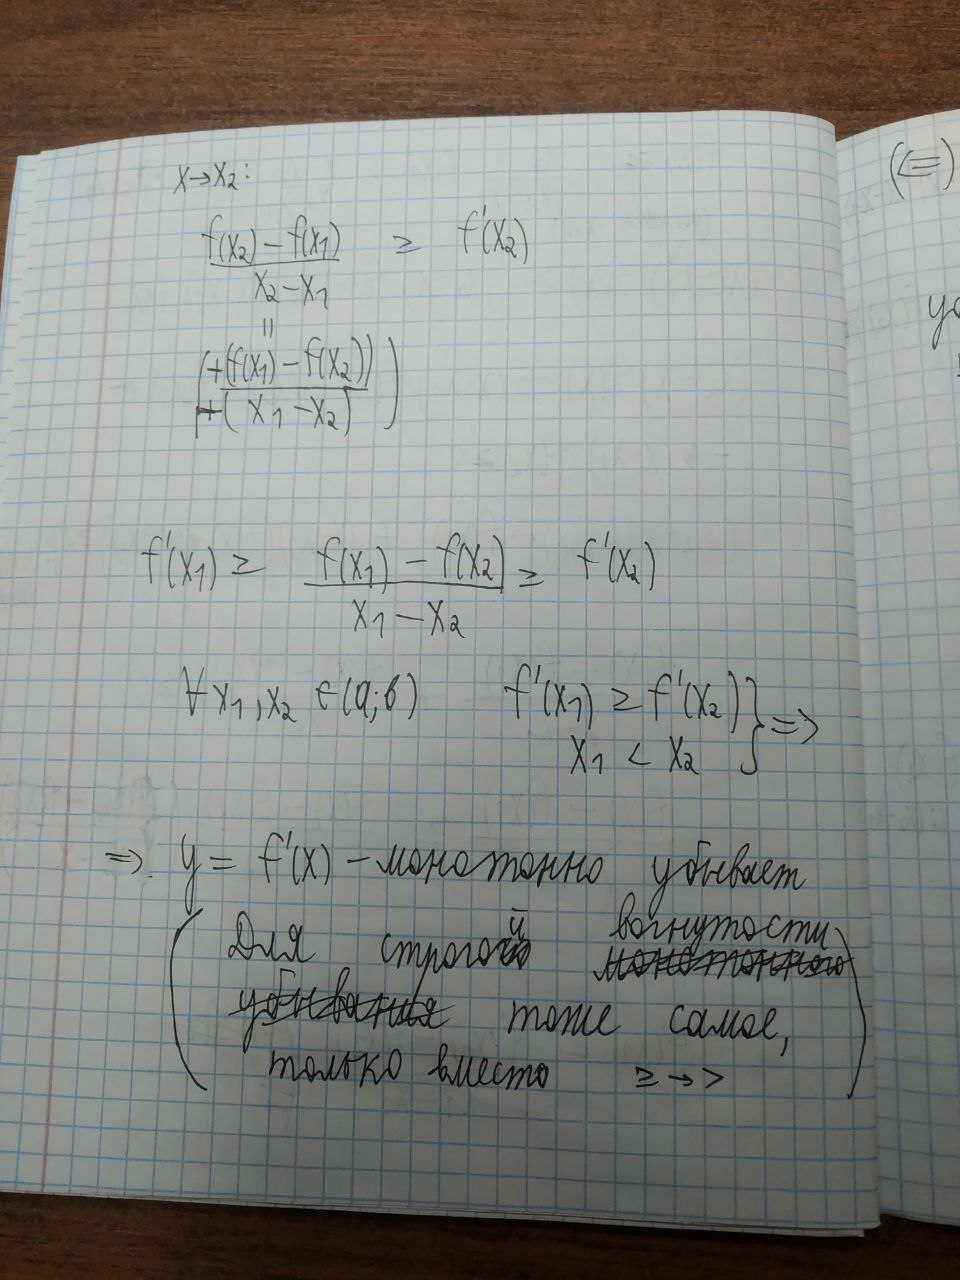 x→x₂:
f(x₂) − f(x₁) / x₂ − x₁ ≥ f'(x₂)
=
( +(f(x₁) − f(x₂)) / +(x₁ − x₂) )
f'(x₁) ≥ f(x₁) − f(x₂) / x₁ − x₂ ≥ f'(x₂)
∀ x₁, x₂ ∈ (a; b) f'(x₁) ≥ f'(x₂) } ⇒
x₁ < x₂
⇒ y = f'(x) – монотонно убывает
(Для строгой вогнутости
тоже самое,
только вместо ≥ → >)
(⇐)